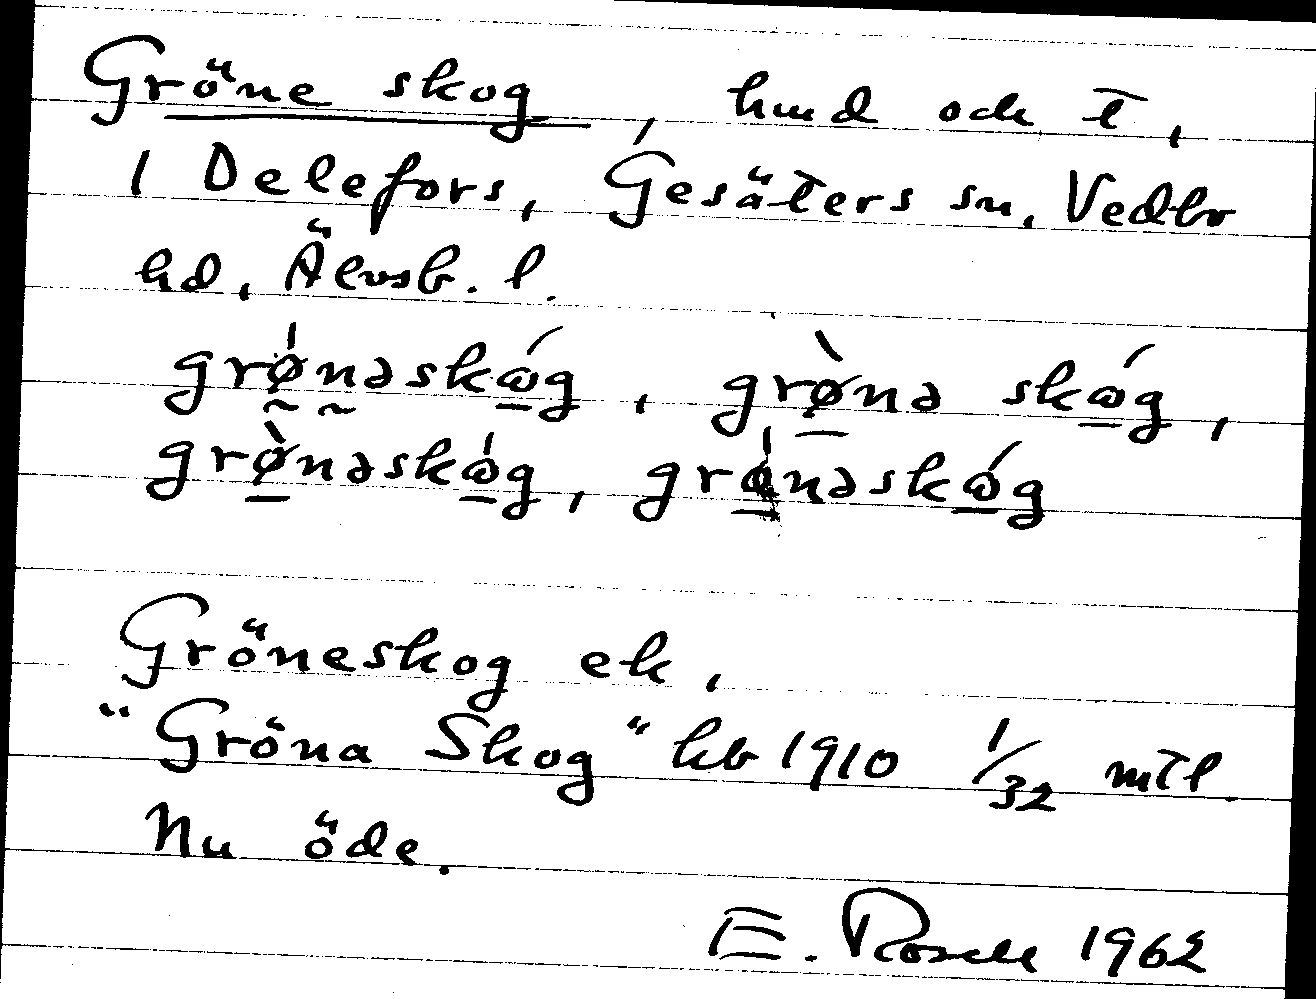 Gröne skog, hmd och t,
1 Delefors, Gesäters sn, Vedbo
hd, Älvsb. l.
grǿ̰n̰əskώ̲g, grø̲̀nə skώ̲g,
grø̲̀nəskώ̲g, grǿ̲nəskώ̲g
Gröneskog ek,
"Gröna Skog" kb 1910 1/32 mtl.
Nu öde.
E. 1962